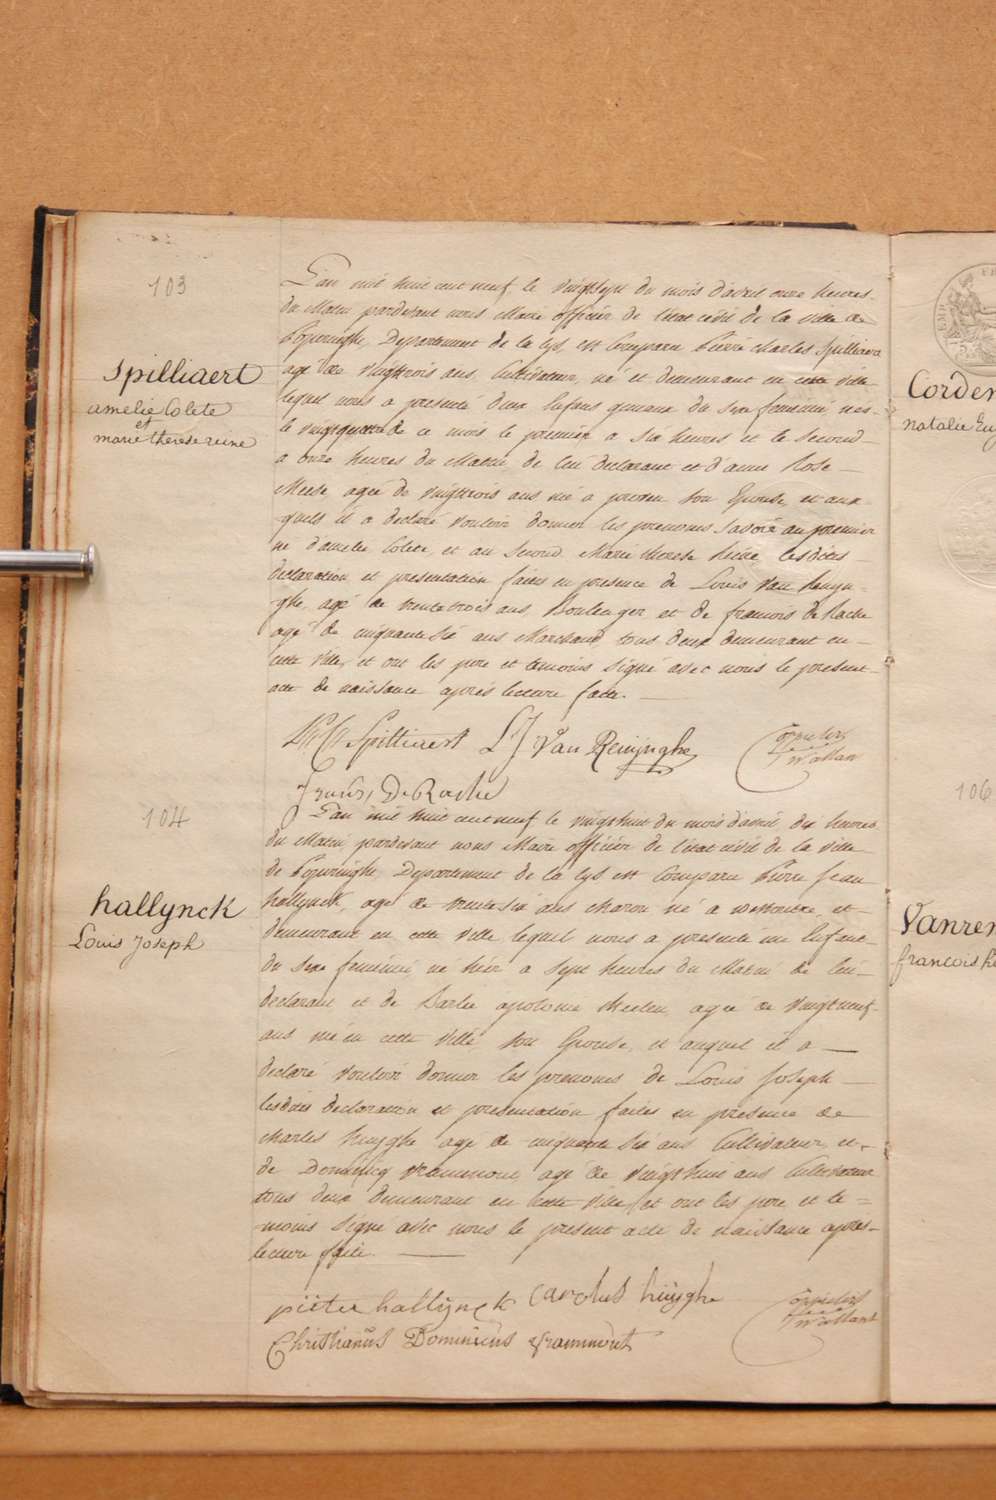 103
Spilliaert
amelie Colete
et
marie therese reine
L'an mil huit cent neuf, le vingtsept du mois d'avril onze heures
du Matin pardevant nous Maire officier de l'etat civil de la ville de
Poperinghe, Departement de la lys, est Comparu Pierre charles Spilliaert
agé de vingttrois ans, Cultivateur, né et demeurant en cette ville
lequel nous a presenté deux Enfans gemaux du sexe feminin nés
le vingtquatre de ce mois le premier a six heures et le second
a onze heures du Matin de lui declarant et d'anne Rose
Meese agée de vingttrois ans né a proven son Epouse, et aux
quels il a declaré vouloir donner les prenoms savoir au premier
né d'amelie Colete, et au second Marie therese Reine lesdites
declaration et presentation faites en presence de Louis Van Renyn-
ghe, agé de trentetrois ans, Boulenger et de francois de Rache
agé de cinquante six ans Marchand tous deux demeurant en
cette ville, et ont les pere et temoins signé avec nous le present
acte de naissance aprés lecture faite.
P: C: Spilliaert L J Van Renÿnghe
Francis De Rache
104
hallynck
Louis Joseph
L'an mil huit cent neuf le vingthuit du mois d'avril dix heures
du Matin, pardevant nous Maire officier de l'etat civil de la ville
de Poperinghe, Departement de la lys est Comparu Pierre Jean
hallynck, agé de trentesix ans charon né a westoutre, et
demeurant en cette ville lequel nous a presenté un Enfant
du sexe feminin, né hier a sept heures du Matin de lui
declarant et de Barbe apolonie agée de vingtneuf
ans née en cette ville son Epouse, et auquel il a
declaré vouloir donner les prenoms de Louis Joseph
lesdites declaration et presentation faites en presence de
charles huyghe agé de cinquante six ans Cultivateur et
de Dominicq vrammout agé de vingthuit ans Cultivateur
tous deux demeurant en cette ville, et ont les pere et te=
moins signé avec nous le present acte de naissance aprés
lecture faite.
pieter hallÿnck carolus hüÿghe
Christianus Dominicus vrammout
Corden
natalie Eug
106
Vanren
francois